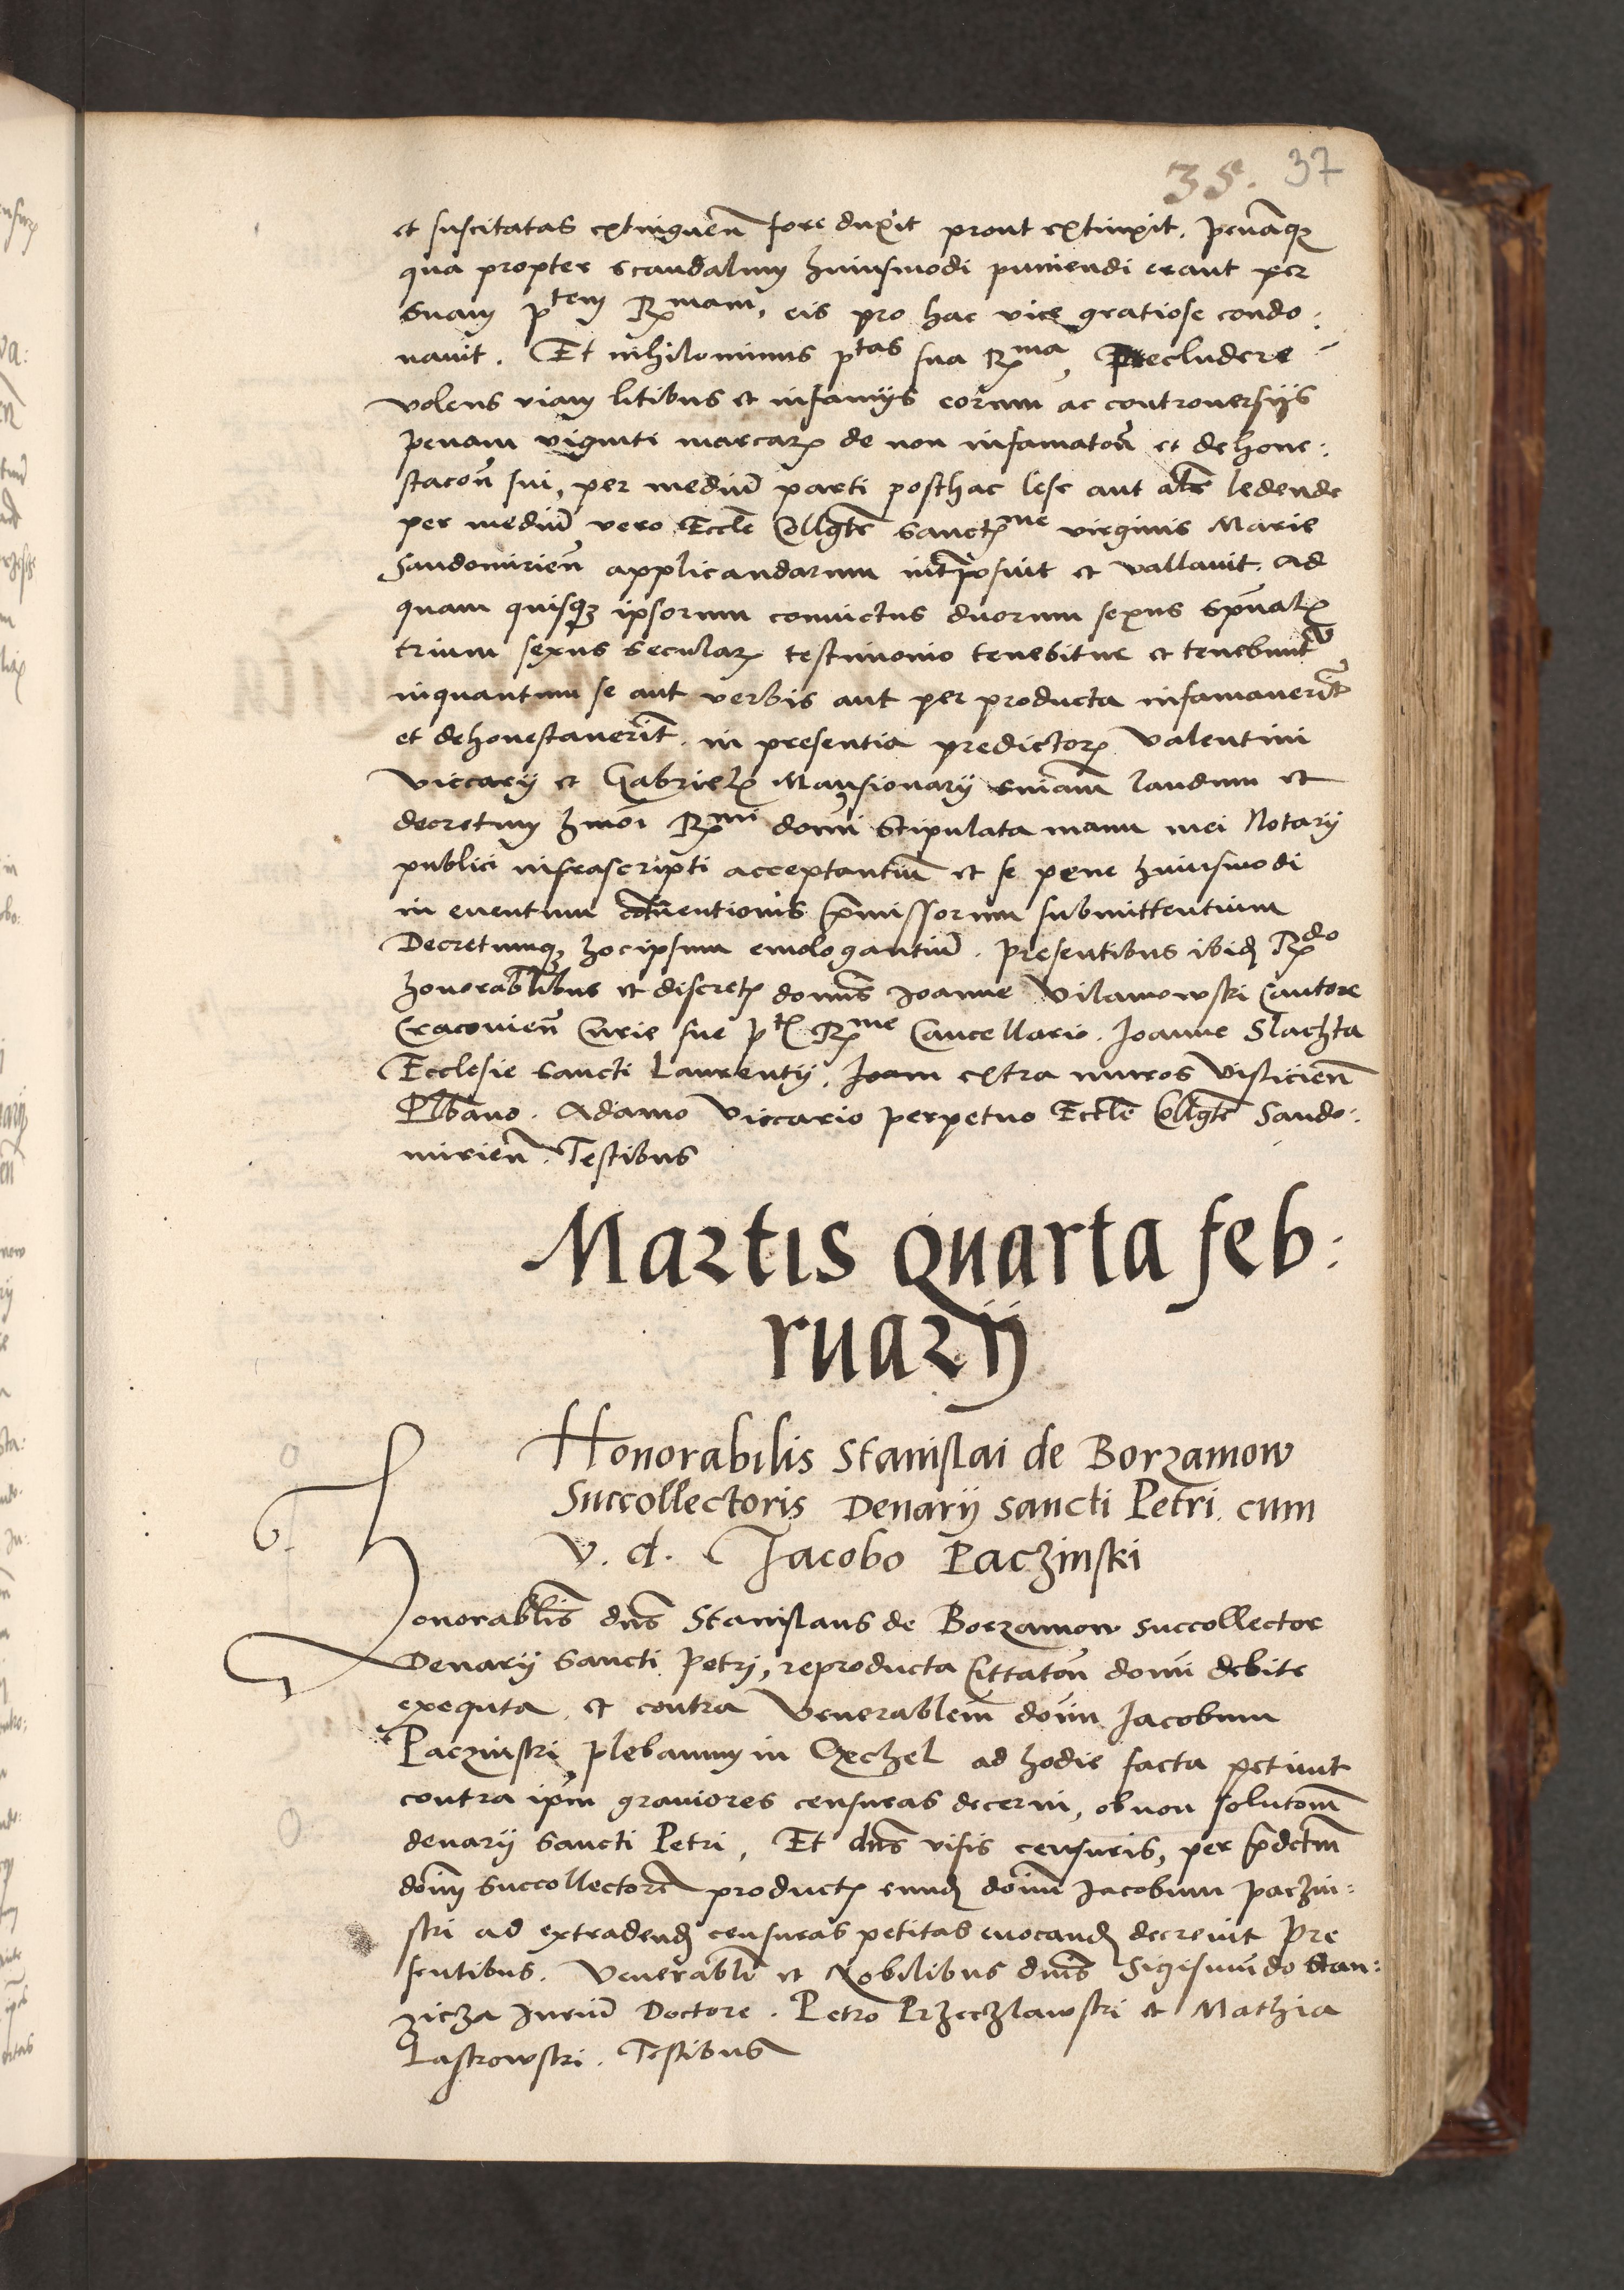 35. 37
et suscitatas extinguen̄ fore duxit prout extinxit. Penāqꝫ
qua propter scandalum huiusmodi puniendi erant per
suam ptem Rmam, eis pro hac vice gratiose condo:
nauit. Et nihilominus ptas sua Rma, Precludere
volens viam litibus et infamijs eorum ac controuersijs
penam viginti marcarꝝ de non infamatoń et dehone:
stacoń sui, per mediū parti posthac lese aut alr̄e ledende
per mediū vero Eccłe Collgte Sanctꝝme virginis Marie
Sandomirien̄ applicandarum int̄posuit et vallauit. Ad
quam quisqꝫ ipsorum conuictus duorum sexus spūalꝝ
trium sexus secularꝝ testimonio tenebitur et tenebuntr
inquantum se aut verbis aut per producta infamauerīt
et dehonestauerīt. in presentia predictorꝝ Valentini
Viccarij et Gabrielꝝ Mansionarij sniam̄ laudum et
decretum hmoi Rmi domī stipulata manu mei Notarij
publici infrascripti acceptantiū et se pene huiusmodi
in euentum contuentionis p̄missorum submittentium
Decretumqꝫ hocipsum emologantiū. Presentibus ibidꝫ Rdo
honorablibus et discretꝫ domīs Joanne Vilamowski Cantore
Cracouien̄ Curie sue ptꝫ Rme Cancellario. Joanne Slachta
Ecclesie sancti Laurentij, Joam extra muros Visliciēn
Plbano. Adamo Viccario perpetuo Eccłe Collgte Sando:
mirien̄. Testibus
Martis Quarta feb:
ruarij
Honorabilis Stanislai de Borzamow
Succollectoris Denarij sancti Petri. cum
v. d. Jacobo Paczinski
6.
Honorablis dn̄s Stanislaus de Borzamow succollector
Denarij Sancti Petri, reproducta Cittatoń domī debite
exequta, et contra Venerablem̄ domī Jacobum
Paczinski plebanum in Czechel ad hodie facta petiuit
contra ipm̄ grauiores censuras decerni, ob non solutom̄
denarij Sancti Petri, Et dn̄s visis censuris, per p̄dctm̄
dom̄ Succollectorē productꝫ eundꝫ domī Jacobum Paczin:
ski ad extradendꝫ censuras petitas euocandꝫ decreuit Pre
sentibus. Venerabli et Nobilibus dnīs Sigismūdo Stan:
zicza Juriū Doctore. Petro Przeczlawski et Mathia
Laskowski. Testibus